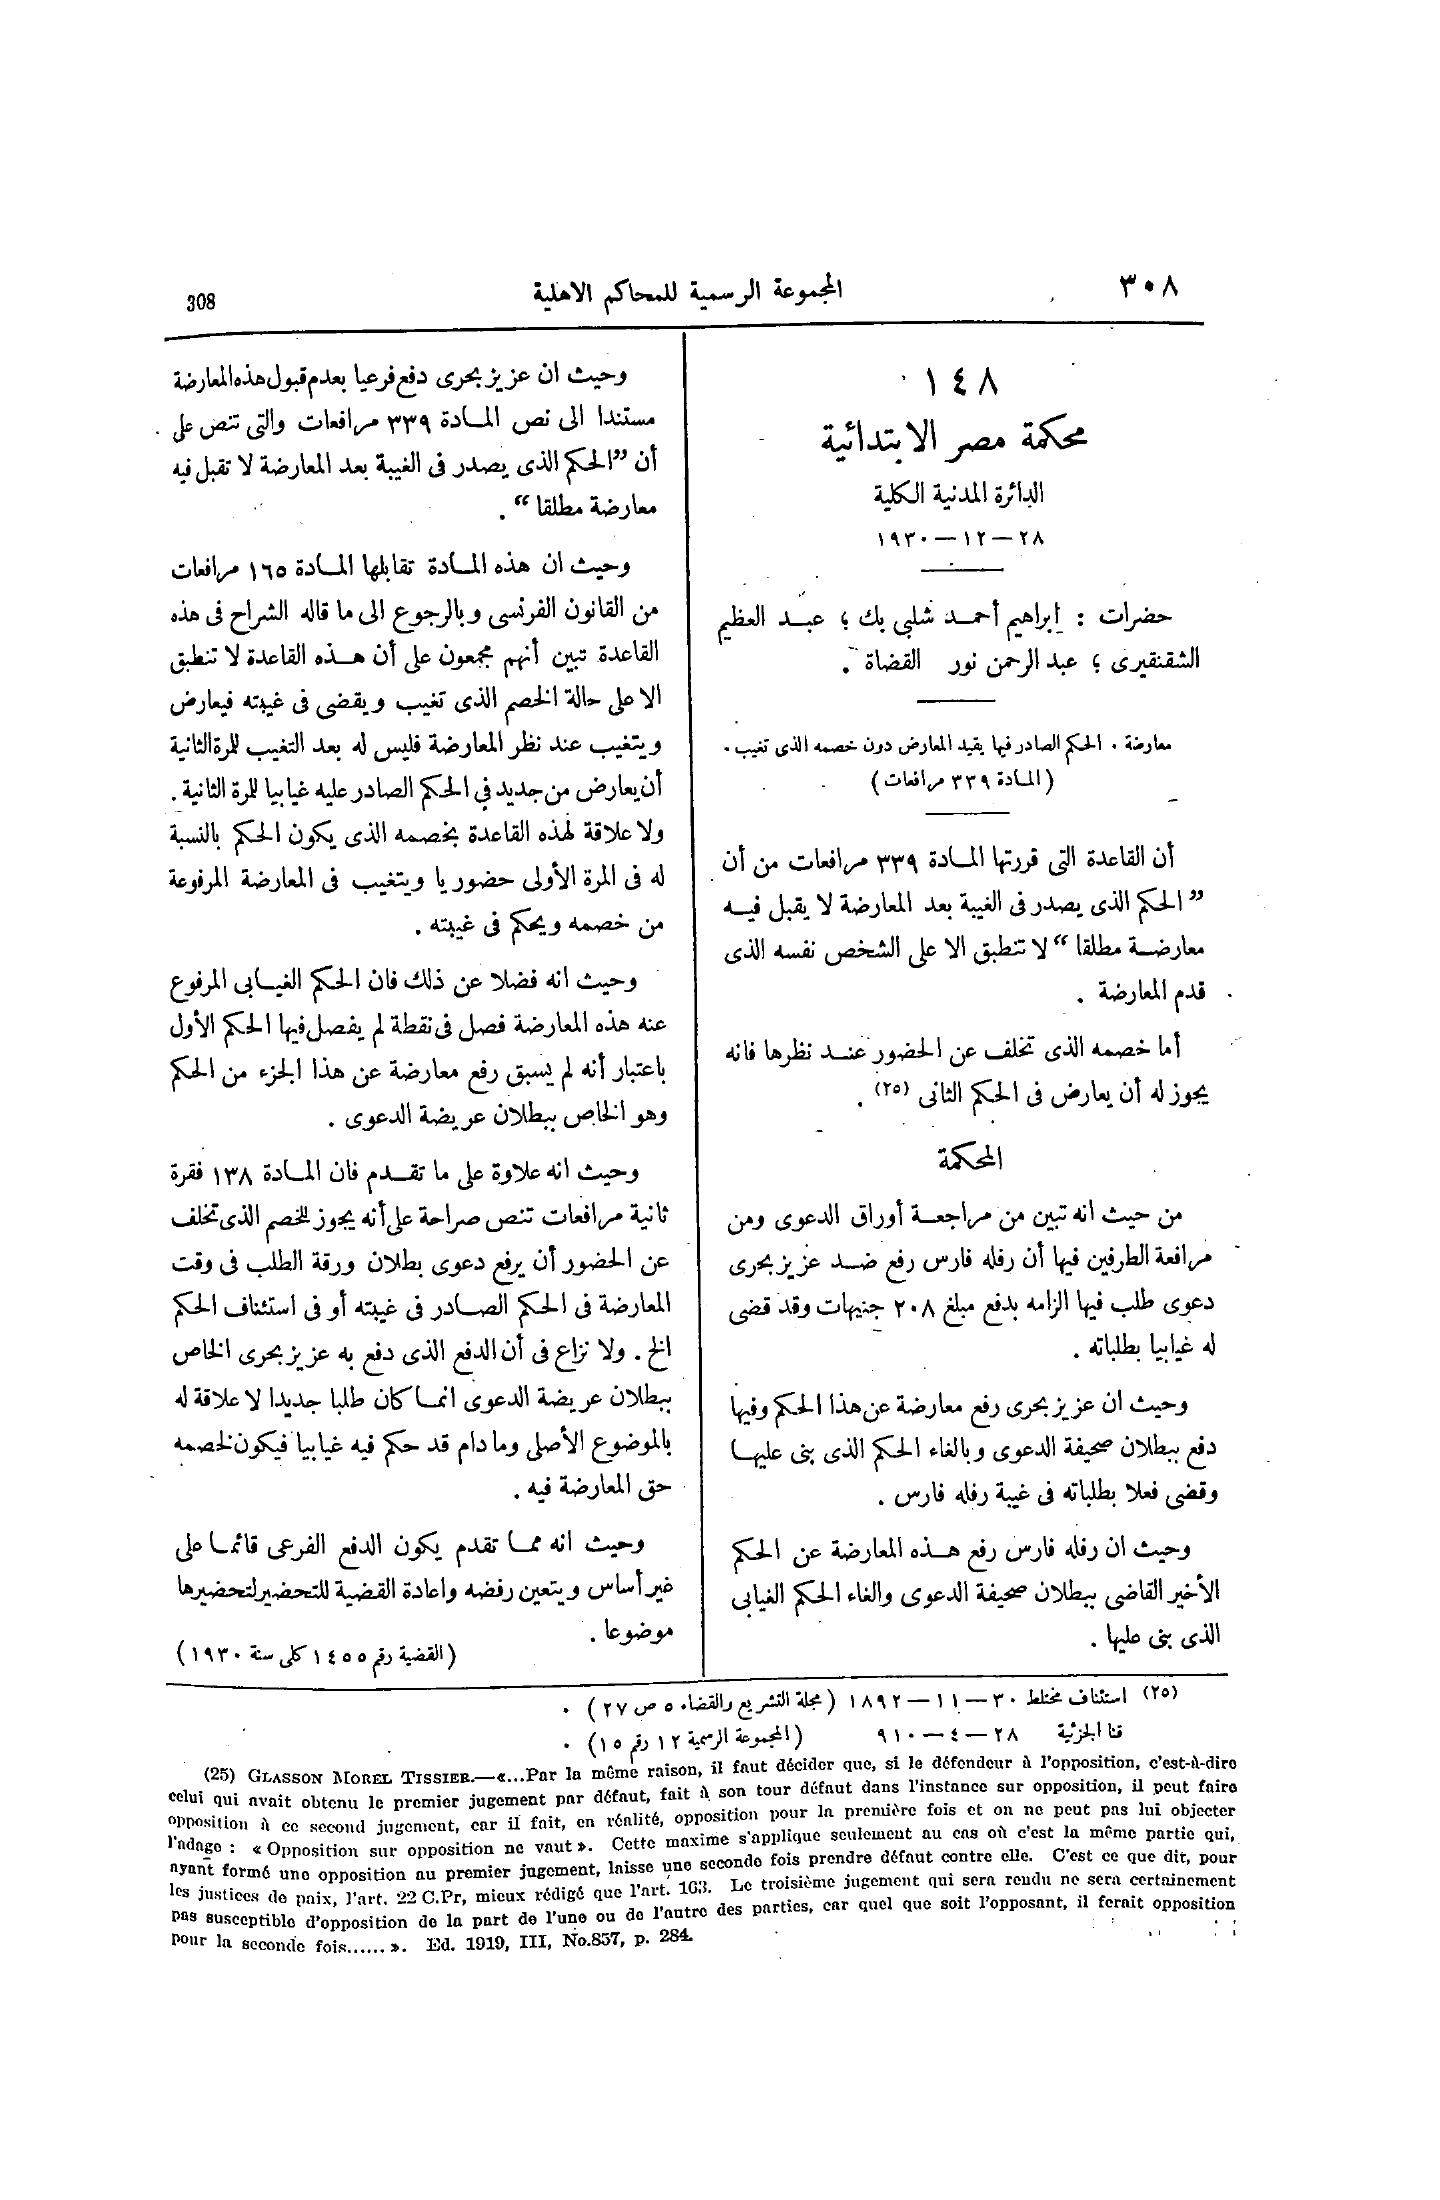 ٣٠٨
المجموعة الرسمية للمحاكم الاهلية
308
١٤٨
محكمة مصر الابتدائية
الدائرة المدنية الكلية
٢٨ — ١٢ — ١٩٣٠
حضرات : إبراهيم أحمد شلبى بك ؛ عبد العظيم
الشقنقيرى ؛ عبد الرحمن نور القضاة .
معارضة . الحكم الصادر فيها يقيد المعارض دون خصمه الذى تغيب .
(المادة ٣٣٩ مرافعات)
أن القاعدة التى قررتها المادة ٣٣٩ مرافعات من أن
”الحكم الذى يصدر فى الغيبة بعد المعارضة لا يقبل فيه
معارضة مطلقا“ لا تنطبق الا على الشخص نفسه الذى
قدم المعارضة .
أما خصمه الذى تخلف عن الحضور عند نظرها فانه
يجوز له أن يعارض فى الحكم الثانى (٢٥) .
المحكمة
من حيث انه تبين من مراجعة أوراق الدعوى ومن
مرافعة الطرفين فيها أن رفله فارس رفع ضد عزيز بحرى
دعوى طلب فيها الزامه بدفع مبلغ ٢٠٨ جنيهات وقد قضى
له غيابيا بطلباته .
وحيث ان عزيز بحرى رفع معارضة عن هذا الحكم وفيها
دفع ببطلان صحيفة الدعوى وبالغاء الحكم الذى بنى عليها
وقضى فعلا بطلباته فى غيبة رفله فارس .
وحيث ان رفله فارس رفع هذه المعارضة عن الحكم
الأخير القاضى ببطلان صحيفة الدعوى والغاء الحكم الغيابى
الذى بنى عليها .
وحيث ان عزيز بحرى دفع فرعيا بعدم قبول هذه المعارضة
مستندا الى نص المادة ٣٣٩ مرافعات والتى تنص على
أن ”الحكم الذى يصدر فى الغيبة بعد المعارضة لا تقبل فيه
معارضة مطلقا“ .
وحيث ان هذه المادة تقابلها المادة ١٦٥ مرافعات
من القانون الفرنسى وبالرجوع الى ما قاله الشراح فى هذه
القاعدة تبين أنهم مجمعون على أن هذه القاعدة لا تنطبق
الا على حالة الخصم الذى تغيب ويقضى فى غيبته فيعارض
ويتغيب عند نظر المعارضة فليس له بعد التغيب للمرة الثانية
أن يعارض من جديد فى الحكم الصادر عليه غيابيا للمرة الثانية .
ولا علاقة لهذه القاعدة بخصمه الذى يكون الحكم بالنسبة
له فى المرة الأولى حضوريا ويتغيب فى المعارضة المرفوعة
من خصمه ويحكم فى غيبته .
وحيث انه فضلا عن ذلك فان الحكم الغيابى المرفوع
عنه هذه المعارضة فصل فى نقطة لم يفصل فيها الحكم الأول
باعتبار أنه لم يسبق رفع معارضة عن هذا الجزء من الحكم
وهو الخاص ببطلان عريضة الدعوى .
وحيث انه علاوة على ما تقدم فان المادة ١٣٨ فقرة
ثانية مرافعات تنص صراحة على أنه يجوز للخصم الذى تخلف
عن الحضور أن يرفع دعوى بطلان ورقة الطلب فى وقت
المعارضة فى الحكم الصادر فى غيبته أو فى استئناف الحكم
الخ . ولا نزاع فى أن الدفع الذى دفع به عزيز بحرى الخاص
ببطلان عريضة الدعوى انما كان طلبا جديدا لا علاقة له
بالموضوع الأصلى وما دام قد حكم فيه غيابيا فيكون لخصمه
حق المعارضة فيه .
وحيث انه مما تقدم يكون الدفع الفرعى قائما على
غير أساس ويتعين رفضه واعادة القضية للتحضير لتحضيرها
موضوعا .
(القضية رقم ١٤٥٥ كلى سنة ١٩٣٠)
(٢٥) استئناف مختلط ٣٠ — ١١ — ١٨٩٢ (مجلة التشريع والقضاء ٥ ص ٢٧) .
قنا الجزئية ٢٨ — ٤ — ٩١٠ (المجموعة الرسمية ١٢ رقم ١٥) .
(25) GLASSON MOREL TISSIER.—«...Par la même raison, il faut décider que, si le défendeur à l'opposition, c'est-à-dire
celui qui avait obtenu le premier jugement par défaut, fait à son tour défaut dans l'instance sur opposition, il peut faire
opposition à ce second jugement, car il fait, en réalité, opposition pour la première fois et on ne peut pas lui objecter
l'adage : « Opposition sur opposition ne vaut ». Cette maxime s'applique seulement au cas où c'est la même partie qui,
ayant formé une opposition au premier jugement, laisse une seconde fois prendre défaut contre elle. C'est ce que dit, pour
les justices de paix, l'art. 22 C.Pr, mieux rédigé que l'art. 163. Le troisième jugement qui sera rendu ne sera certainement
pas susceptible d'opposition de la part de l'une ou de l'autre des parties, car quel que soit l'opposant, il ferait opposition
pour la seconde fois...... ». Ed. 1919, III, No.857, p. 284.